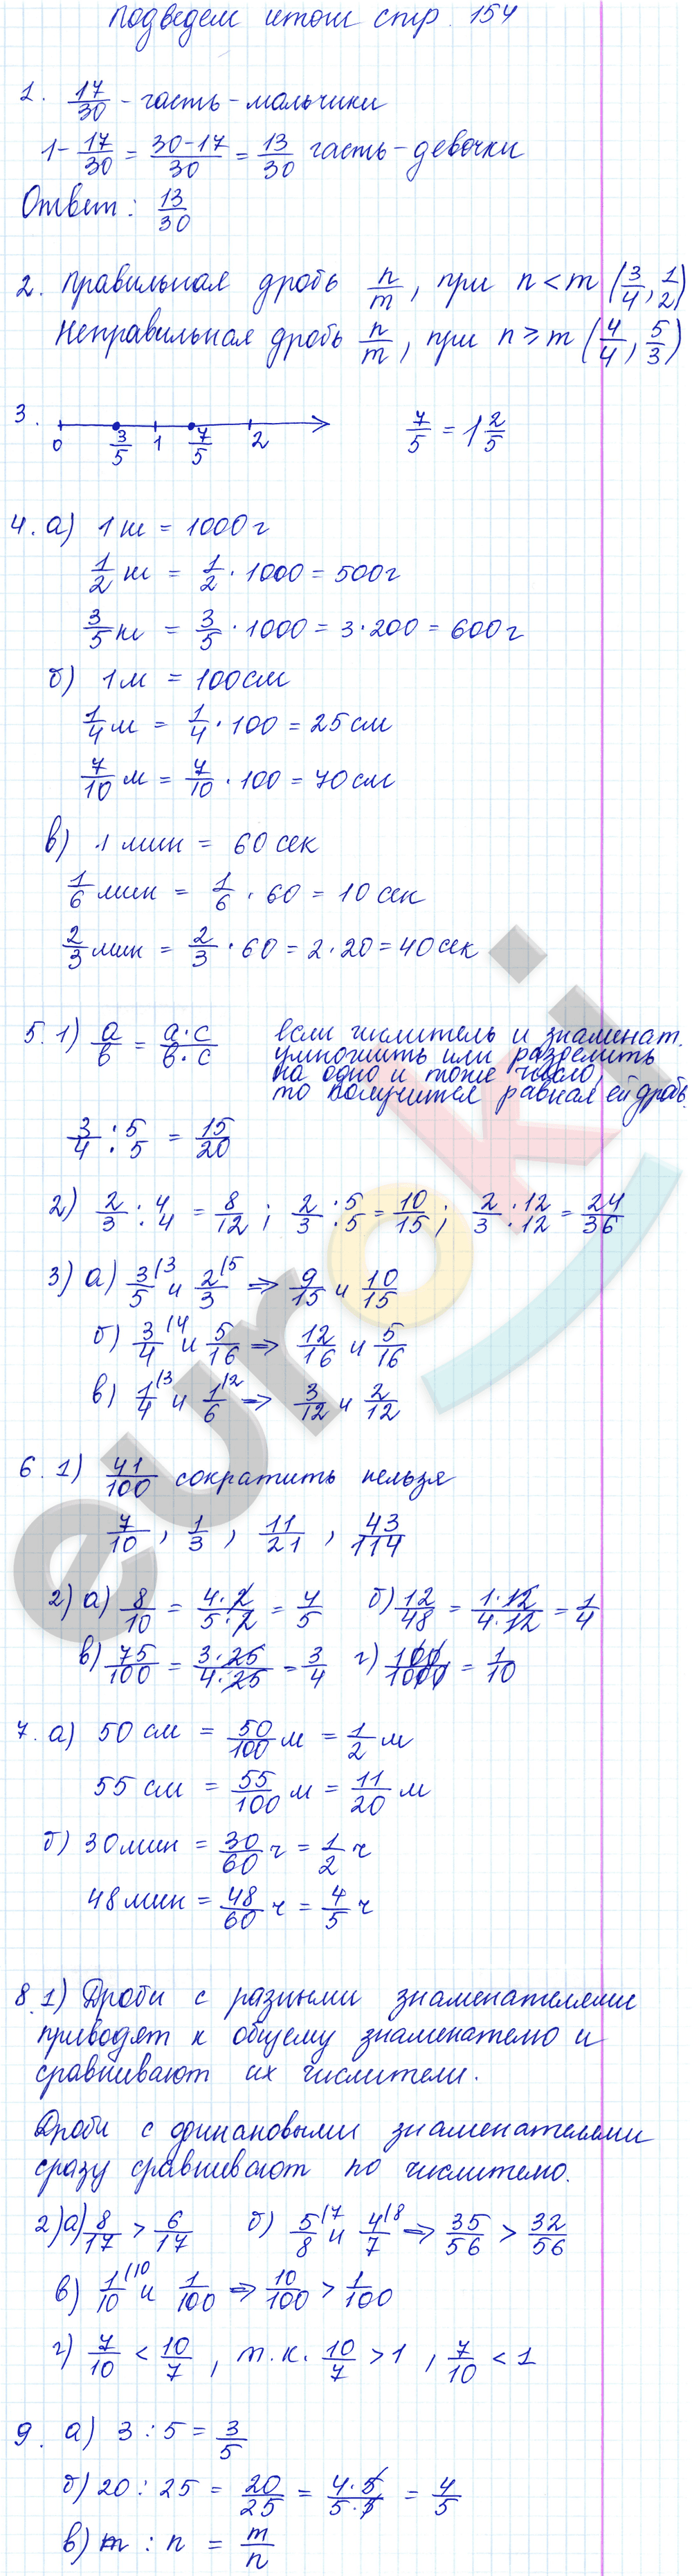 подведем итоги стр. 154
1. 17/30 - часть - мальчики
1 - 17/30 = 30-17/30 = 13/30 часть - девочки
Ответ: 13/30
2. Правильная дробь n/m, при n < m (3/4, 1/2)
Неправильная дробь n/m, при n ≥ m (4/4, 5/3)
3. 0 3/5 1 7/5 2 7/5 = 1 2/5
4. а) 1 кг = 1000 г
1/2 кг = 1/2 · 1000 = 500 г
3/5 кг = 3/5 · 1000 = 3 · 200 = 600 г
б) 1 м = 100 см
1/4 м = 1/4 · 100 = 25 см
7/10 м = 7/10 · 100 = 70 см
в) 1 мин = 60 сек
1/6 мин = 1/6 · 60 = 10 сек
2/3 мин = 2/3 · 60 = 2 · 20 = 40 сек
5. 1) a/b = a·c/b·c если числитель и знаменат.
умножить или разделить
на одно и тоже число,
то получится равная ей дробь.
3/4 : 5/5 = 15/20
2) 2/3 : 4/4 = 8/12 ; 2/3 : 5/5 = 10/15 ; 2/3 : 12/12 = 24/36
3) а) 3/5 \3 и 2/3 \5 => 9/15 и 10/15
б) 3/4 \4 и 5/16 => 12/16 и 5/16
в) 1/4 \3 и 1/6 \2 => 3/12 и 2/12
6. 1) 41/100 сократить нельзя
7/10 , 1/3 , 11/21 , 43/114
2) а) 8/10 = 4·2/5·2 = 4/5 б) 12/48 = 1·12/4·12 = 1/4
в) 75/100 = 3·25/4·25 = 3/4 г) 100/1000 = 1/10
7. а) 50 см = 50/100 м = 1/2 м
55 см = 55/100 м = 11/20 м
б) 30 мин = 30/60 ч = 1/2 ч
48 мин = 48/60 ч = 4/5 ч
8. 1) Дроби с разными знаменателями
приводят к общему знаменателю и
сравнивают их числители.
Дроби с одинаковыми знаменателями
сразу сравнивают по числителю.
2) а) 8/17 > 6/17 б) 5/8 \7 и 4/7 \8 => 35/56 > 32/56
в) 1/10 \10 и 1/100 => 10/100 > 1/100
г) 7/10 < 10/7 , т.к. 10/7 > 1 , 7/10 < 1
9. а) 3 : 5 = 3/5
б) 20 : 25 = 20/25 = 4·5/5·5 = 4/5
в) m : n = m/n
euroki